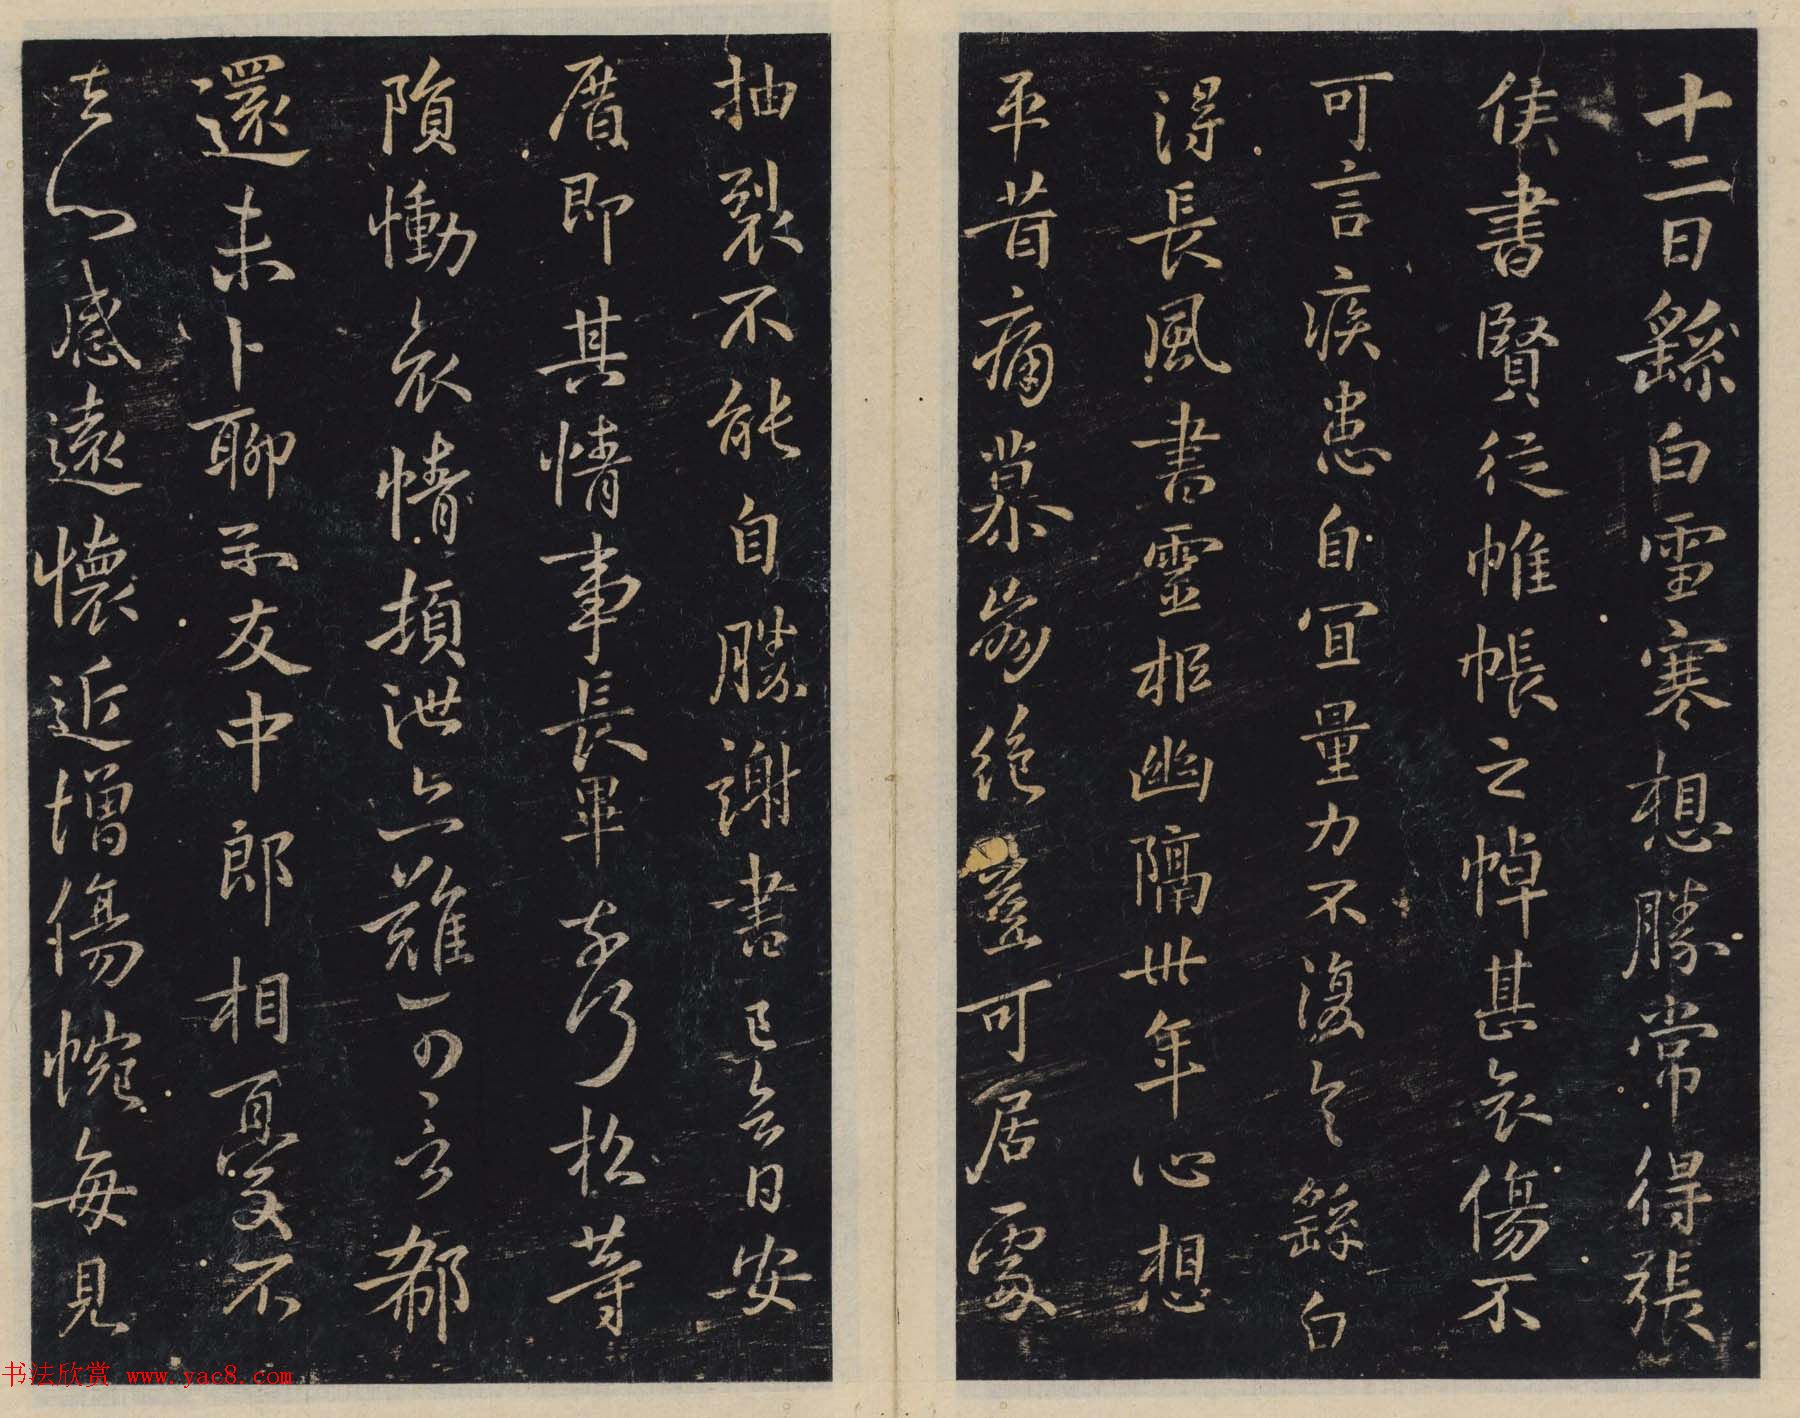 十二日繇白雪寒想勝常得張
侯書賢從帷帳之悼甚哀傷不
可言疾患自宜量力不復具繇白
得長風書靈柩幽隔卅年心想
平昔痛慕崩絕豈可居處
抽裂不能自勝謝書已具日安
厝即其情事長畢奈何松等
隕慟哀情損泄亦難可言郗
還未卜聊示友中郎相憂不
去心感遠懷近增傷惋每見
书法欣赏 www.yac8.com